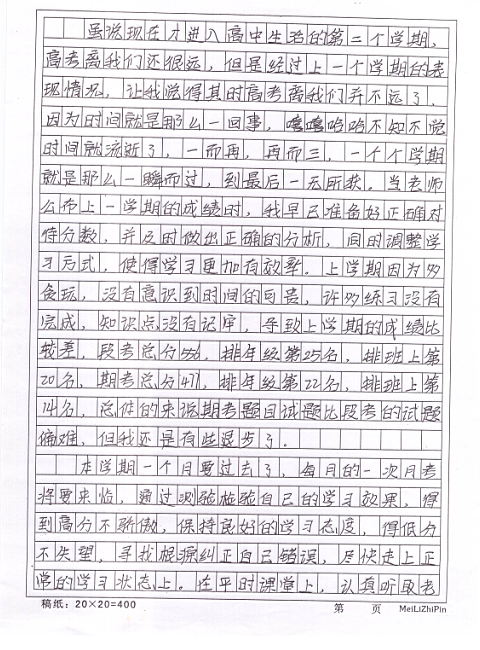 虽说现在才进入高中生活的第二个学期，
高考离我们还很远，但是经过上一个学期的表
现情况，让我觉得其时高考离我们并不远了，
因为时间就是那么一回事，嘻嘻哈哈不知不觉
时间就流逝了，一而再，再而三，一个个学期
就是那么一瞬而过，到最后一无所获。当老师
公布上一学期的成绩时，我早已准备好正确对
待分数，并及时做出正确的分析，同时调整学
习方式，使得学习更加有效率。上学期因为多
贪玩，没有意识到时间的可贵，许多练习没有
完成，知识点没有记牢，导致上学期的成绩比
较差，段考总分556，排年级第25名，排班上第
20名，期考总分471，排年级第22名，排班上第
14名，总体的来说期考题目试题比段考的试题
偏难，但我还是有些退步了．
本学期一个月要过去了，每月的一次月考
将要来临，通过测验检验自己的学习效果，得
到高分不骄傲，保持良好的学习态度，得低分
不失望，寻找根源纠正自己错误，尽快走上正
常的学习状态上。在平时课堂上，认真听取老
稿纸：20×20=400 第 页 MeiLiZhiPin